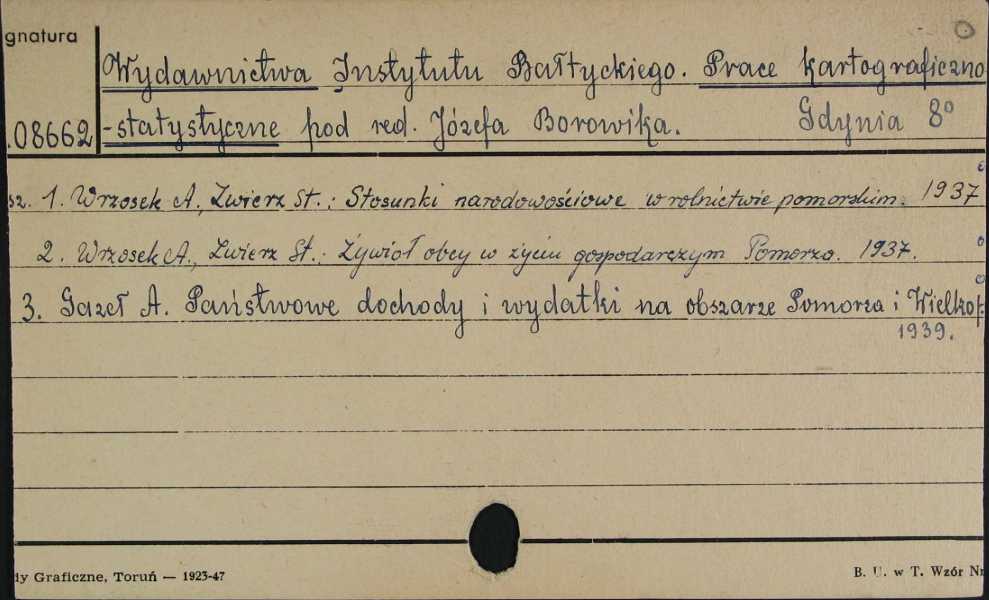 gnatura
Wydawnictwa Instytutu Bałtyckiego. Prace kartograficzno
.08662 -statystyczne pod red. Józefa Borowika. Gdynia 8°
sz. 1. Wrzosek A., Zwierz St.: Stosunki narodowościowe w rolnictwie pomorskim. 1937
2. Wrzosek A., Zwierz St.: Żywioł obcy w życiu gospodarczym Pomorza. 1937.
3. Gazeł A. Państwowe dochody i wydatki na obszarze Pomorza i Wielkop.
1939.
dy Graficzne, Toruń — 1923-47
B. U. w T. Wzór Nr